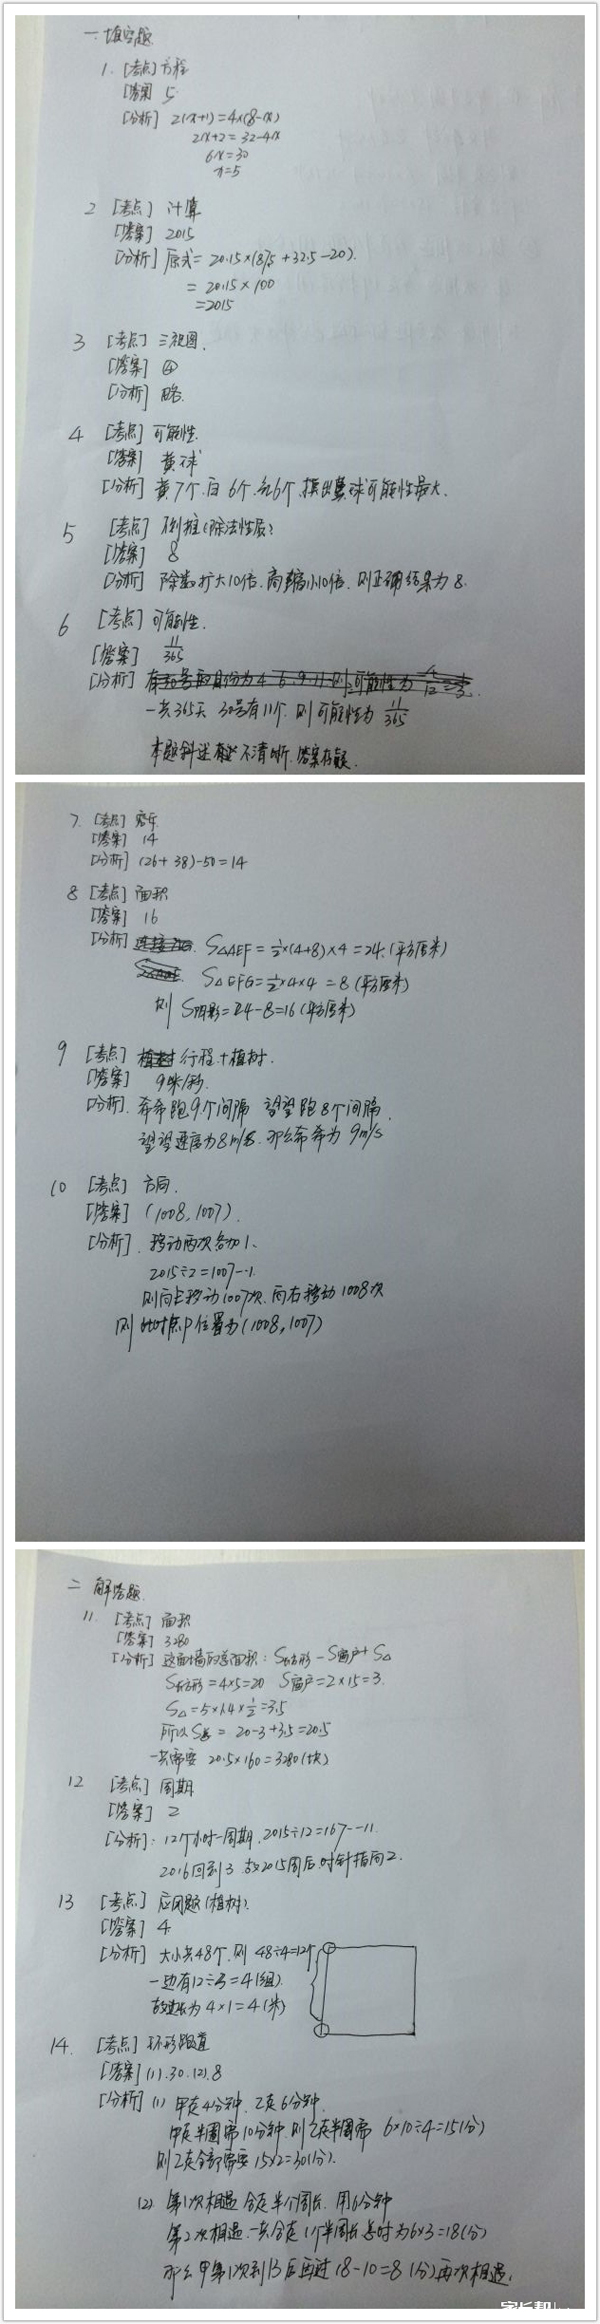 一. 填空题
1. [考点] 方程
[答案] 5
[分析] 2(x+1)=4×(8-x)
2x+2=32-4x
6x=30
x=5
2 [考点] 计算
[答案] 2015
[分析] 原式= 20.15×(87.5+32.5-20)
= 20.15×100
=2015
3 [考点] 三视图.
[答案] ④
[分析] 略.
4 [考点] 可能性.
[答案] 黄球
[分析] 黄7个.白6个.红6个.摸出黄球可能性最大.
5 [考点] 倒推(除法性质)
[答案] 8
[分析] 除数扩大10倍.商缩小10倍.则正确结果为8.
6 [考点] 可能性.
[答案] 11/365
[分析]
一共365天 30号有11个.则可能性为 11/365
本题叙述有些不清晰.答案存疑.
7. [考点] 容斥
[答案] 14
[分析] (26+38)-50=14
8 [考点] 面积
[答案] 16
[分析] S△AEF=½×(4+8)×4=24.(平方厘米)
S△EFG=½×4×4=8(平方厘米)
则 S阴影=24-8=16(平方厘米)
9 [考点] 行程+植树.
[答案] 9米/秒.
[分析]. 希希跑9个间隔 望望跑8个间隔.
望望速度为8m/s.那么希希为 9m/s
10 [考点] 方向.
[答案] (1008,1007).
[分析]. 移动两次各加1、
2015÷2=1007…1.
则向上移动1007次.向右移动1008次
则 此时点P位置为(1008,1007)
二 解答题.
11. [考点] 面积
[答案] 3280
[分析] 这面墙的总面积: S长方形-S窗户+S△
S长方形=4×5=20 S窗户=2×1.5=3.
S△=5×1.4×½=3.5
所以S总= 20-3+3.5=20.5
一共需要 20.5×160=3280(块)
12 [考点] 周期
[答案] 2
[分析]: 12个小时一周期.2015÷12=167…11.
2016回到3.故2015周后.时针指向2.
13 [考点] 应用题(植树).
[答案] 4.
[分析] 大小共48个.则 48÷4=12个
一边有12÷3=4(组).
故边长为 4×1=4(米)
14. [考点] 环形跑道
[答案] (1).30.(2).8
[分析] (1) 甲走4分钟.乙走6分钟.
甲走半圈需10分钟.则乙走半圈需 6×10÷4=15(分)
则乙走全部需要 15×2=30(分).
(2). 第1次相遇 合走半个周长.用6分钟
第2次相遇.一共合走1个半周长.总时为6×3=18(分)
那么甲第1次到B后再过 18-10=8 (分)再次相遇.
家长帮